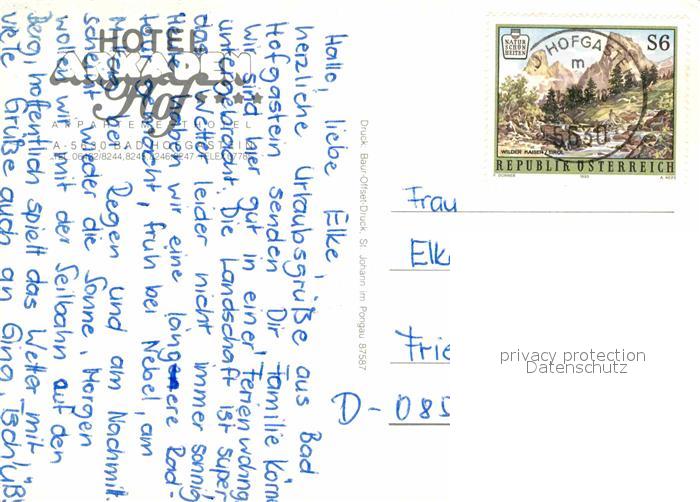 HOTEL
ARKADEN
Hof
APPARTEMENTHOTEL
A-5630 BAD HOFGASTEIN
Hallo, liebe Elke,
herzliche Urlaubsgrüße aus Bad
Hofgastein senden Dir Familie
Wir sind hier gut in einer Ferienwohng.
untergebracht. Die Landschaft ist super,
das Wetter leider nicht immer sonnig
Heute haben wir eine längere Rad-
tour gemacht, früh bei Nebel, am
Mittag bei Regen und am Nachmitt.
scheint wieder die Sonne. Morgen
wollen wir mit der Seilbahn auf den
Berg, hoffentlich spielt das Wetter mit
Viele Grüße auch an Gina, Tschüß!
Druck: Baur-Offset-Druck, St. Johann im Pongau 87587
NATUR
SCHÖN
HEITEN
S6
HOFGASTE
m
5630
WILDER KAISER / TIROL
REPUBLIK ÖSTERREICH
Frau
Elk
Frie
D-085
privacy protection
Datenschutz